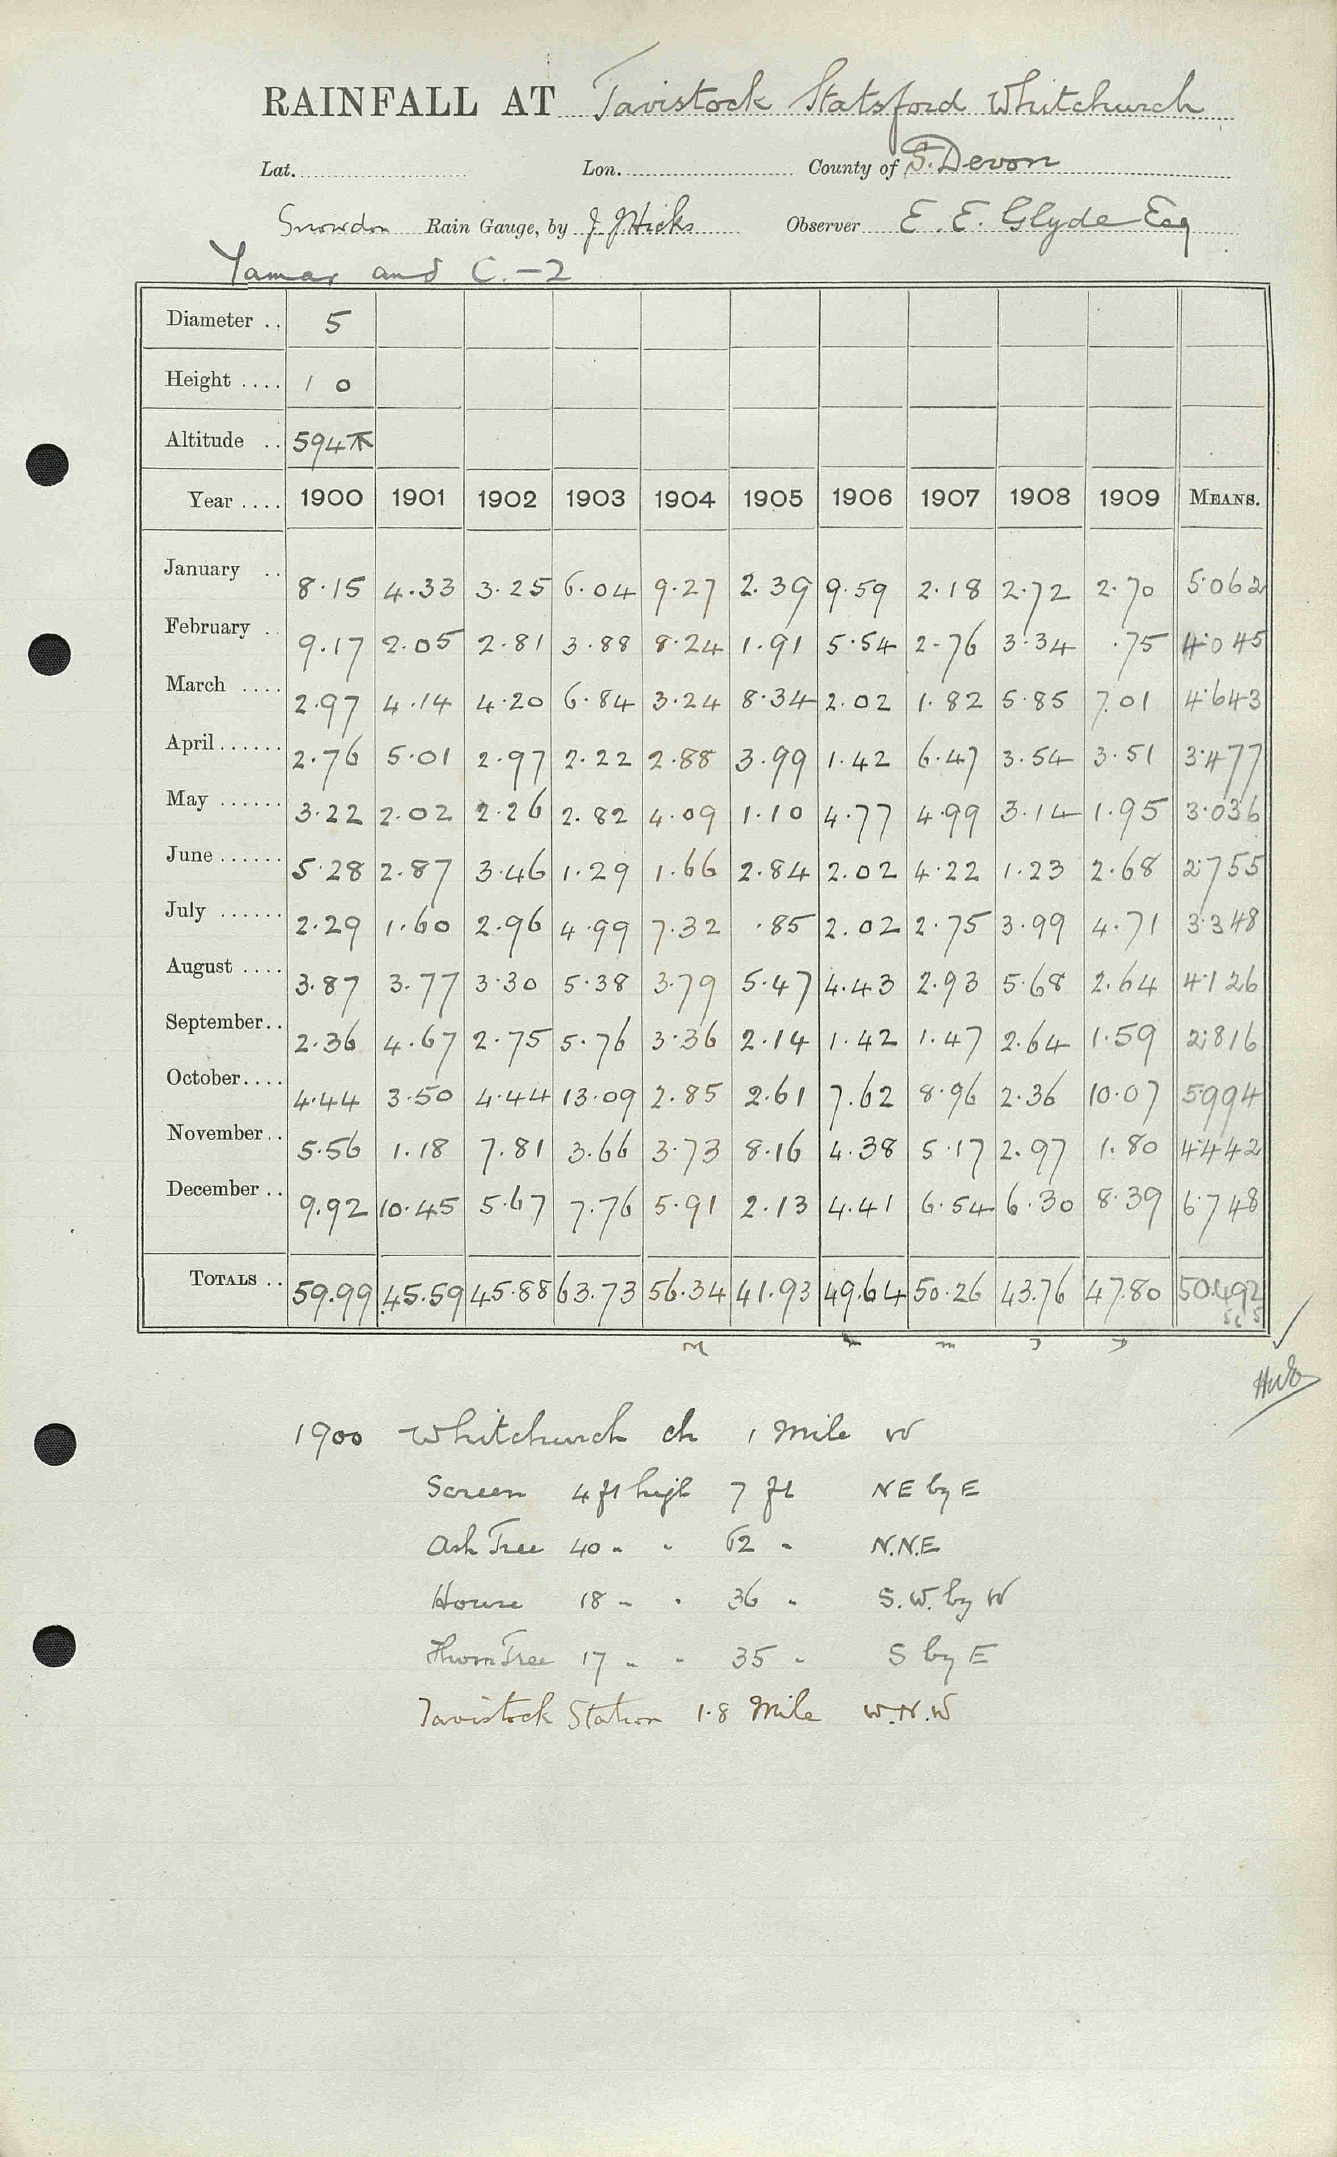 RAINFALL AT Tavistock Statsford Whitchurch
Lat. Lon. County of S. Devon
Snowdon Rain Gauge, by J. J Hicks Observer E. E. Glyde Esq
Tamar and C.-2
Diameter .. 5
Height .... 1 0
Altitude .. 594
Year .... 1900 1901 1902 1903 1904 1905 1906 1907 1908 1909 MEANS.
January .. 8.15 4.33 3.25 6.04 9.27 2.39 9.59 2.18 2.72 2.70 5.062
February .. 9.17 2.05 2.81 3.88 8.24 1.91 5.54 2.76 3.34 .75 4.045
March .... 2.97 4.14 4.20 6.84 3.24 8.34 2.02 1.82 5.85 7.01 4.643
April ...... 2.76 5.01 2.97 2.22 2.88 3.99 1.42 6.47 3.54 3.51 3.477
May ...... 3.22 2.02 2.26 2.82 4.09 1.10 4.77 4.99 3.14 1.95 3.036
June ...... 5.28 2.87 3.46 1.29 1.66 2.84 2.02 4.22 1.23 2.68 2.755
July ...... 2.29 1.60 2.96 4.99 7.32 .85 2.02 2.75 3.99 4.71 3.348
August .... 3.87 3.77 3.30 5.38 3.79 5.47 4.43 2.93 5.68 2.64 4.126
September .. 2.36 4.67 2.75 5.76 3.36 2.14 1.42 1.47 2.64 1.59 2.816
October .... 4.44 3.50 4.44 13.09 2.85 2.61 7.62 8.96 2.36 10.07 5.994
November .. 5.56 1.18 7.81 3.66 3.73 8.16 4.38 5.17 2.97 1.80 4.442
December .. 9.92 10.45 5.67 7.76 5.91 2.13 4.41 6.54 6.30 8.39 6.748
TOTALS .. 59.99 45.59 45.88 63.73 56.34 41.93 49.64 50.26 43.76 47.80 50.492
1900 Whitchurch ch 1 Mile W
Screen 4 ft high 7 ft NE by E
Ash Tree 40 " " 62 " N.N.E
House 18 " " 36 " S.W. by W
Thorn Tree 17 " " 35 " S by E
Tavistock Station 1.8 Mile W.N.W